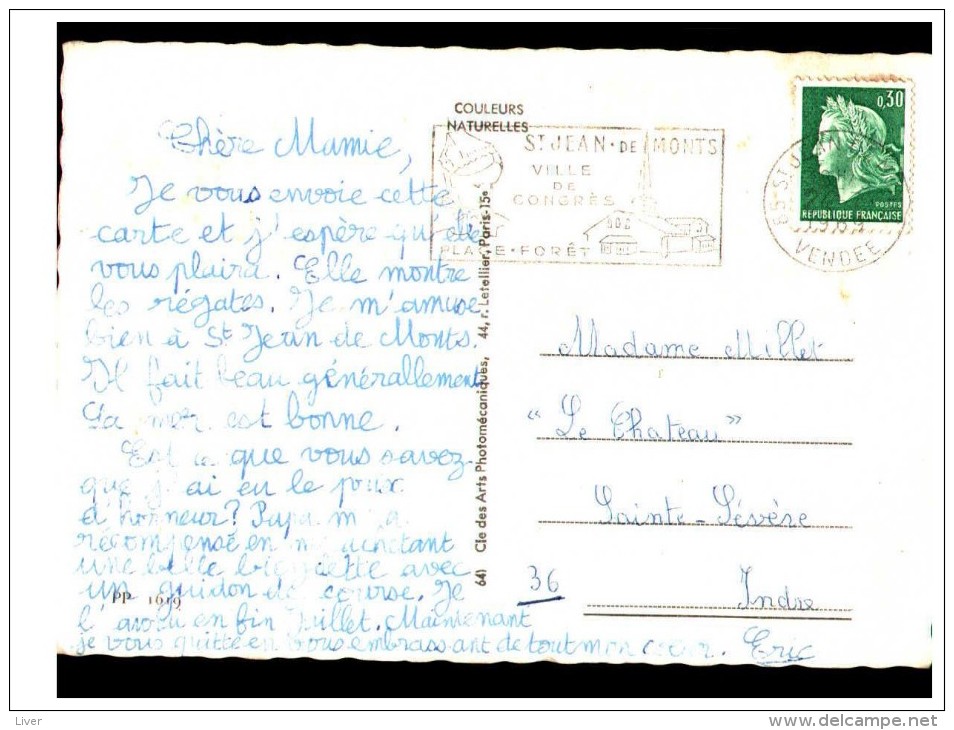 COULEURS
NATURELLES
ST JEAN · DE MONTS
VILLE
DE
CONGRÈS
PLAGE · FORÊT
0,30
POSTES
REPUBLIQUE FRANÇAISE
VENDEE
Chère Mamie,
Je vous envoie cette
carte et j'espère qu'elle
vous plaira. Elle montre
les régates. Je m'amuse
bien à St Jean de Monts.
Il fait beau générallement
La mer est bonne.
Est ce que vous savez
que j'ai eu le prix
d'honneur? Papa m'a
récompensé en m'achetant
une belle bicyclette avec
un guidon de course. Je
l'ai eu en fin Juillet. Maintenant
je vous quitte en vous embrassant de tout mon cœur. Eric
PP 1619
64) Cie des Arts Photomécaniques, 44, r. Letellier, Paris-15e
Madame Millet
"Le Chateau"
Sainte-Sévère
36
Indre
Liver
www.delcampe.net